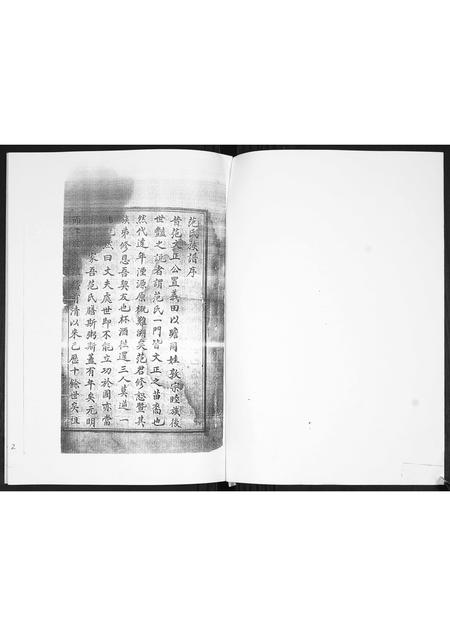 范氏族譜序
昔范文正公置義田以贍同姓敦宗睦族後
世豔之說者謂范氏一門皆文正之苗裔也
然代遠年湮源原概難溯矣范君修恕暨其
族弟修息吾契友也杯酒往還三人莫逆一
然曰丈夫處世即不能立功於國亦當
家吾范氏饍斯粥斯蓋有年矣元明
清以來已歷十餘世矣祖
2